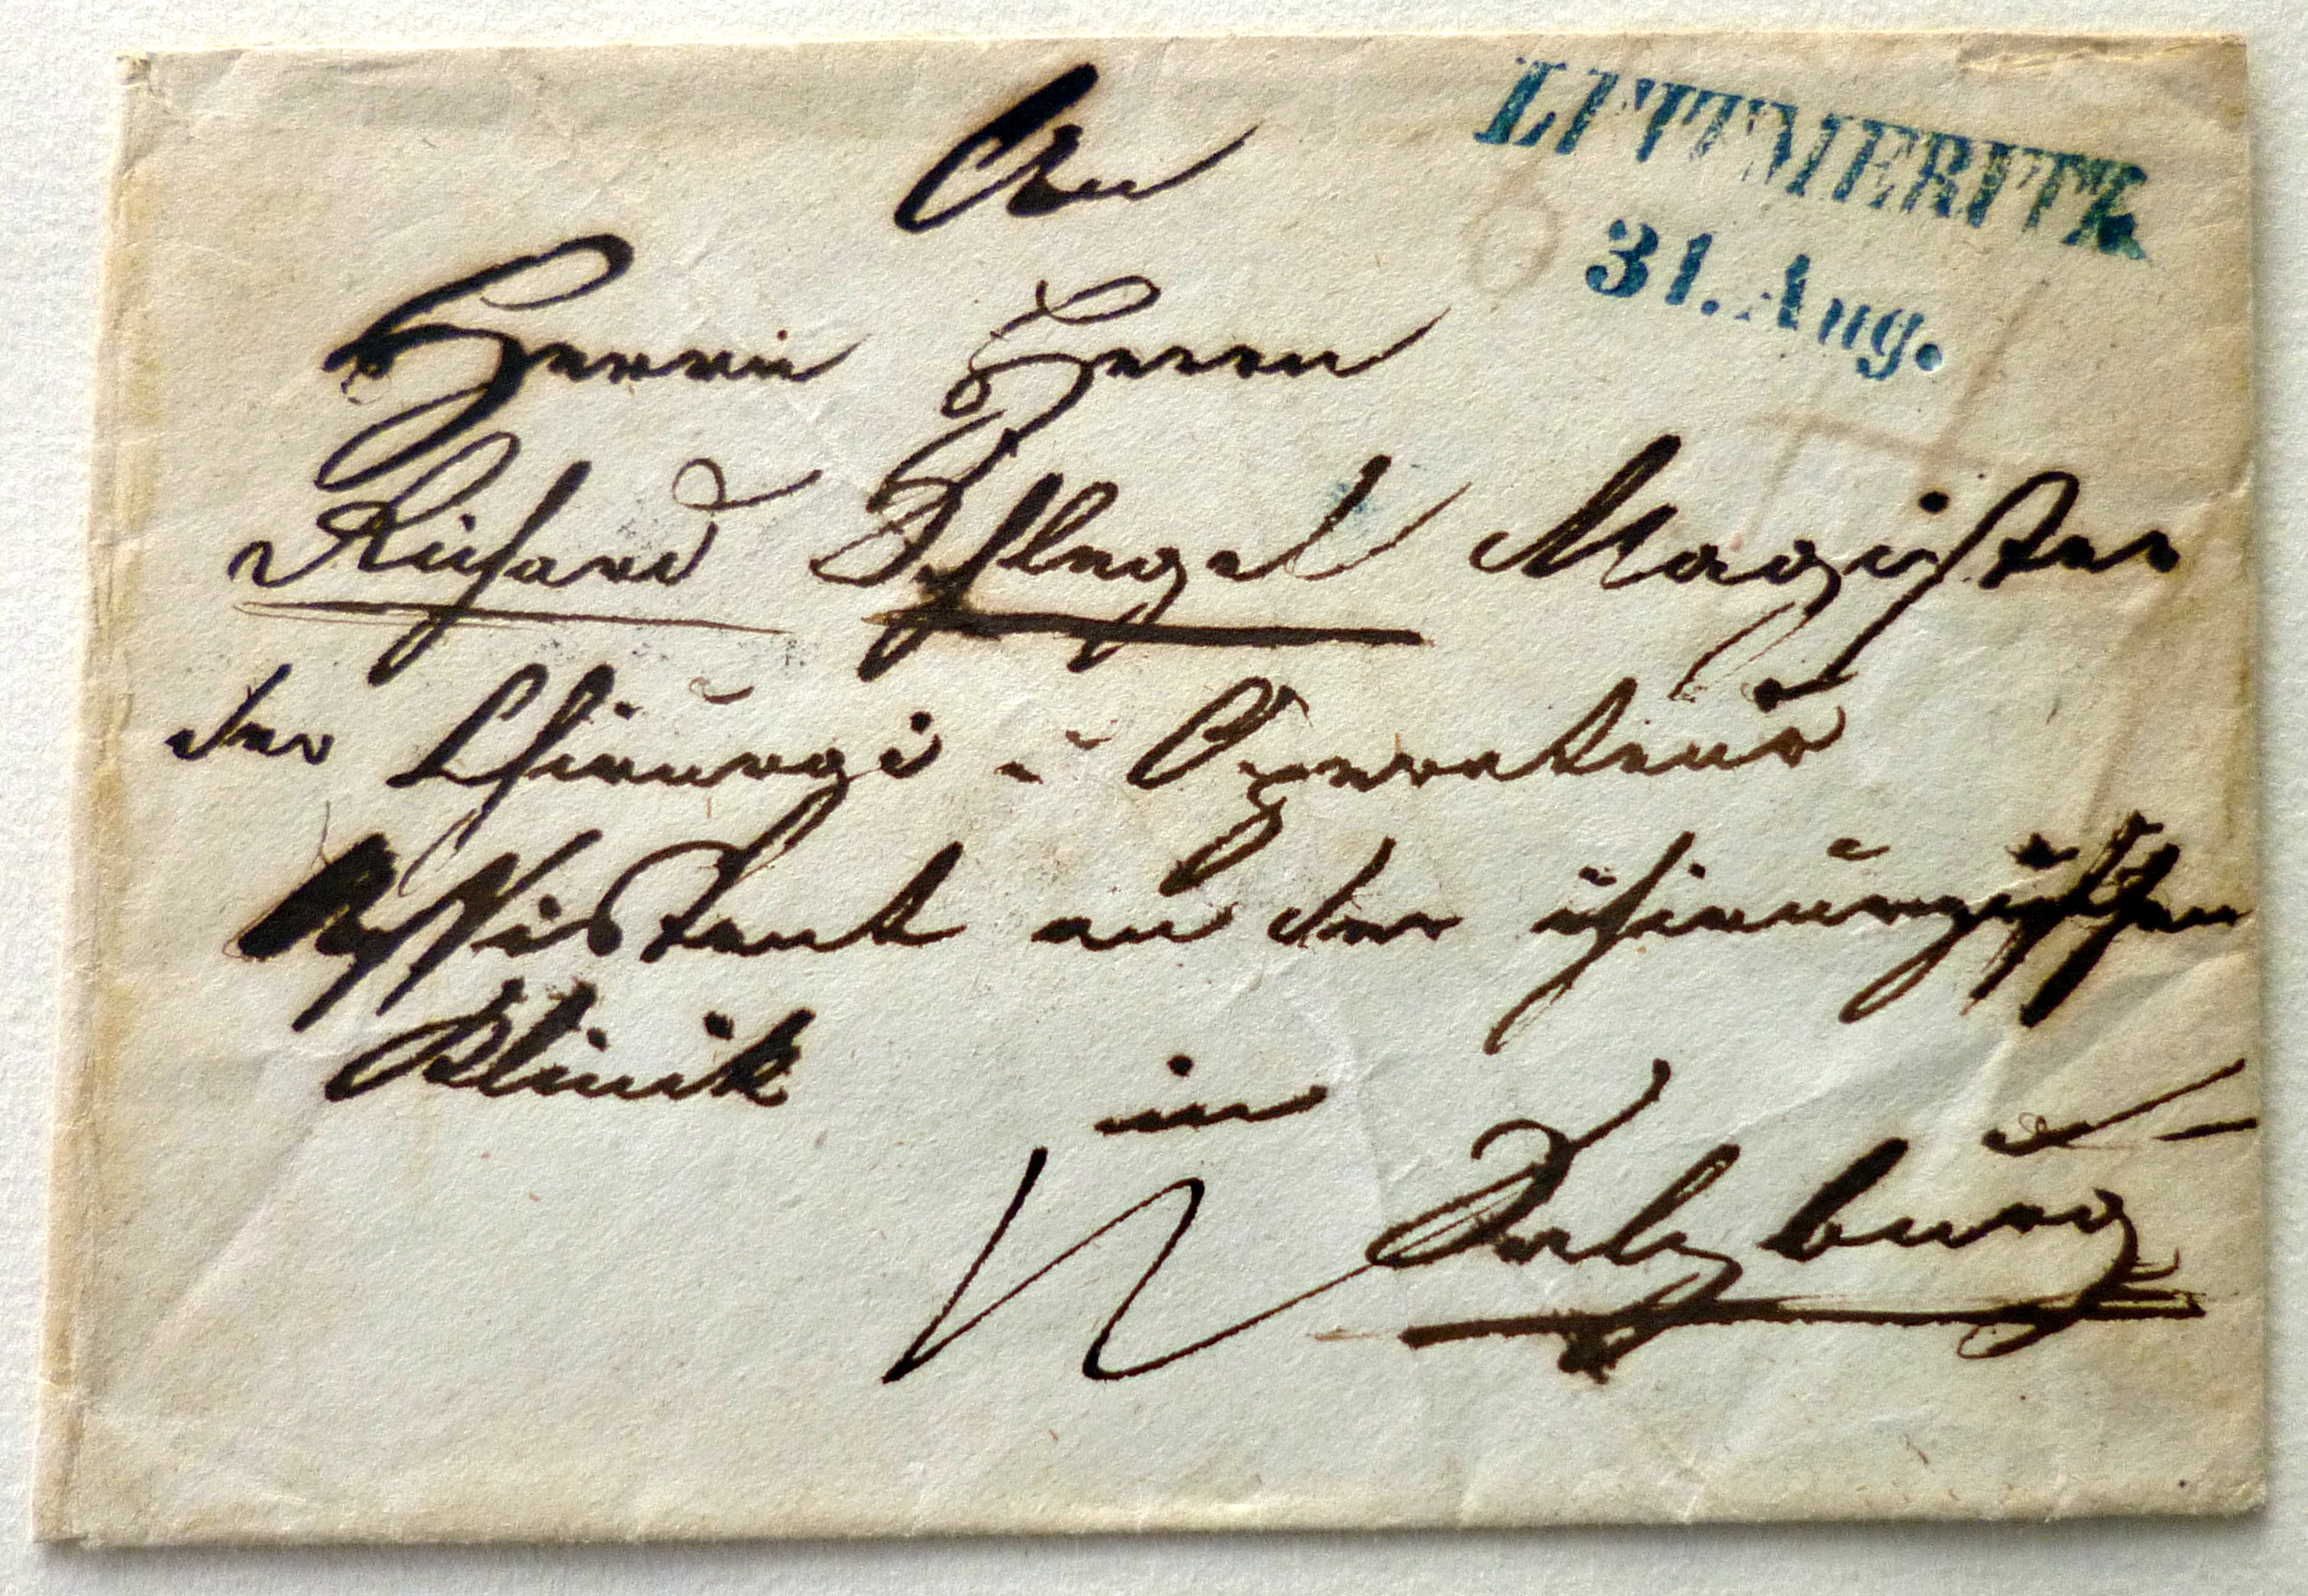 LEITMERITZ
31. Aug.
An
Herrn Herrn
Richard Pflegel Magister
der Chirurgi u Operateur
Assistent an der chirurgischen
Klinik
in
Salzburg